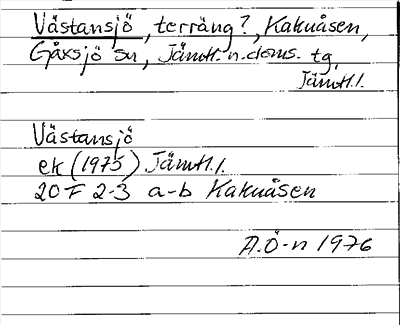 Västansjö, terräng?, Kakuåsen,
Gåxsjö sn, Jämtl. n. doms. tg,
Jämtl.l.
Västansjö
ek (1975) Jämtl.l.
20 F 2-3 a-b Kakuåsen
A.Ö-n 1976